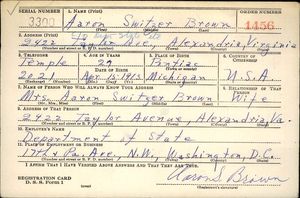 SERIAL NUMBER
1. NAME (Print)
ORDER NUMBER
3300
Aaron Switzer Brown
1456
2. ADDRESS (Print)
2422 Taylor Ave., Alexandria, Virginia
3. TELEPHONE
4. AGE IN YEARS
5. PLACE OF BIRTH
6. COUNTRY OF CITIZENSHIP
Temple
27
Pontiac
DATE OF BIRTH
2021
Apr. 13 1913
Michigan
U.S.A.
7. NAME OF PERSON WHO WILL ALWAYS KNOW YOUR ADDRESS
8. RELATIONSHIP OF THAT PERSON
Mrs. Aaron Switzer Brown
Wife
9. ADDRESS OF THAT PERSON
2422 Taylor Avenue Alexandria, Va.
10. EMPLOYER'S NAME
Department of State
11. PLACE OF EMPLOYMENT OR BUSINESS
17th & Pa. Ave., N.W., Washington, D.C.
I AFFIRM THAT I HAVE VERIFIED ABOVE ANSWERS AND THAT THEY ARE TRUE.
REGISTRATION CARD
D. S. S. FORM 1
Aaron S. Brown